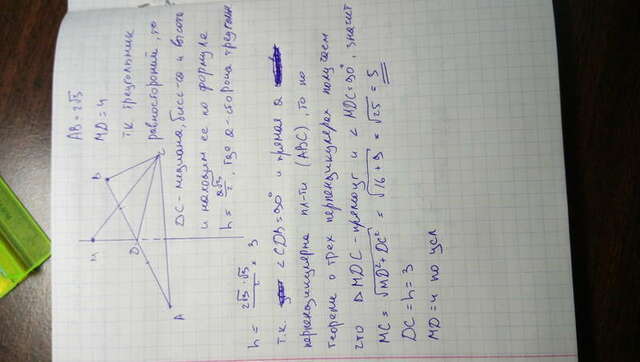 AB = 2√3
MD = 4
т.к. треугольник
равносторонний, то
DC - медиана, бисс-са и высота
и находим ее по формуле
h = a√3/2, где a - сторона треугольн
M
B
D
C
A
h = 2√3 · √3/2 = 3
т.к. <CDB = 90° и прямая a
перпендикулярна пл-ти (ABC), то по
теореме о трех перпендикулярах получаем
что △MDC - прямоуг и < MDC = 90°, значит
MC = √MD² + DC² = √16 + 9 = √25 = 5
DC = h = 3
MD = 4 по усл